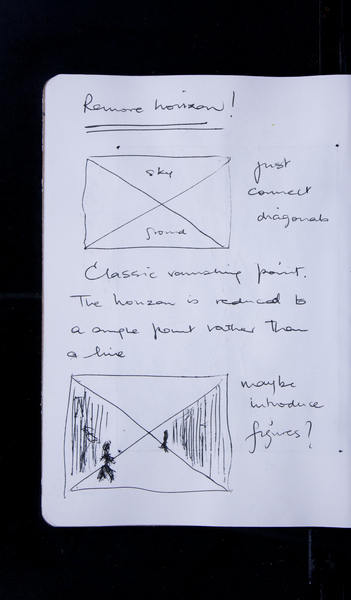 Remove horizon!
sky
ground
just
connect
diagonals
Classic vanishing point.
The horizon is reduced to
a single point rather than
a line
maybe
introduce
figures?